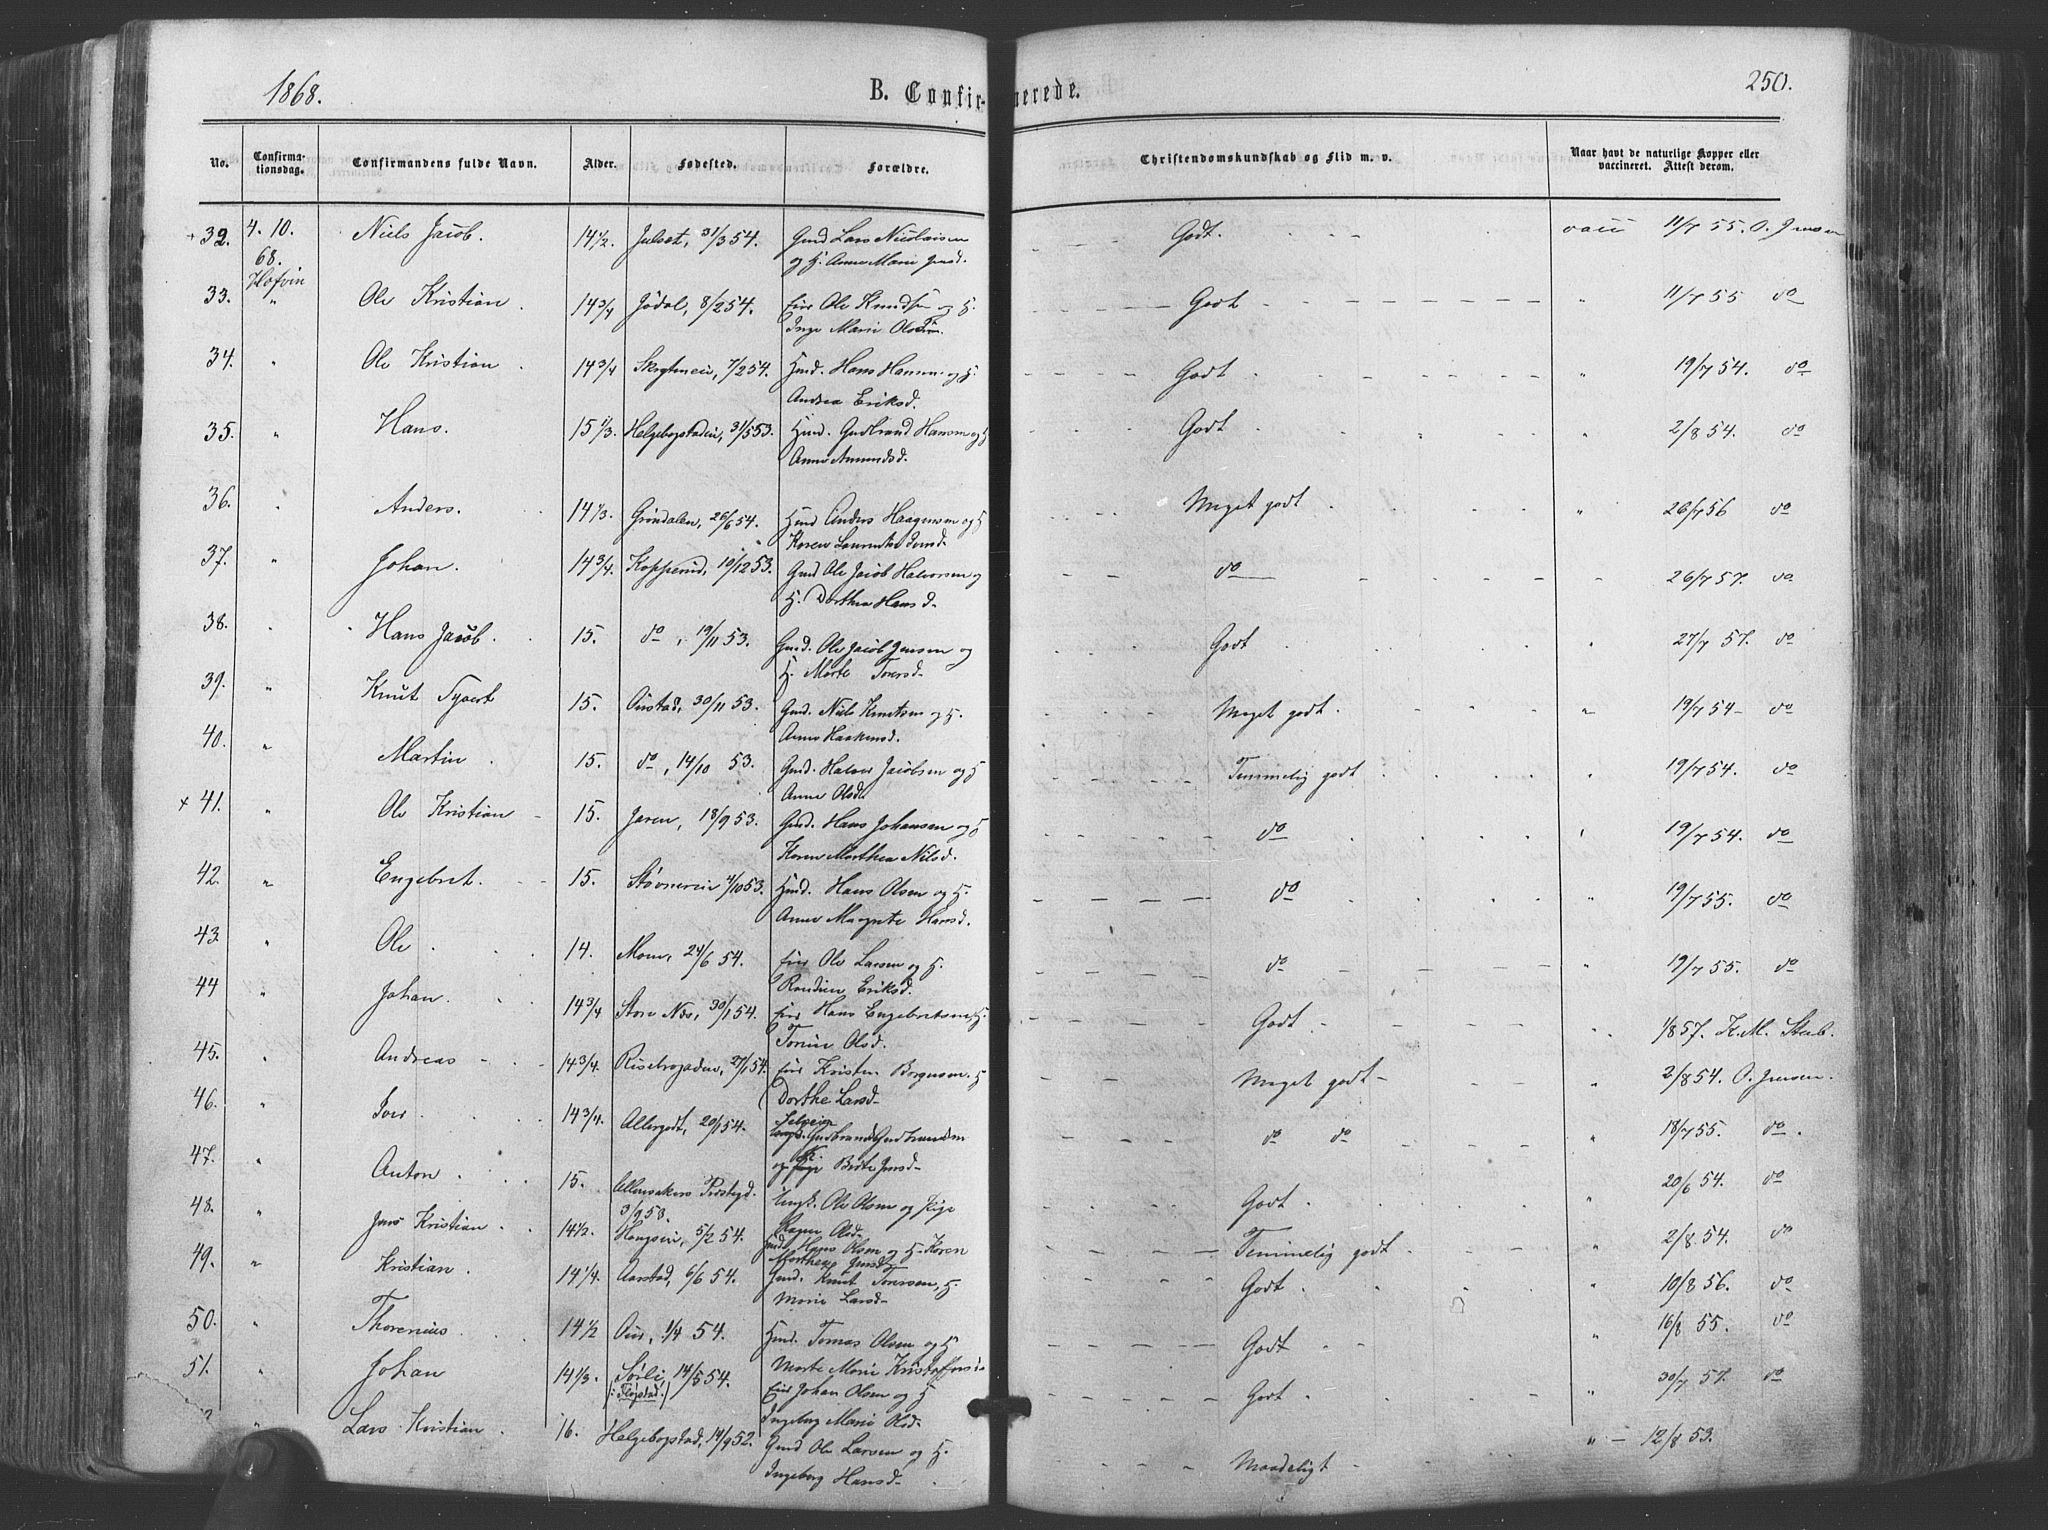 1868. B. Confirmerede. 250.
No. Confirmationsdag. Confirmandens fulde Navn. Alder. Fødested. Forældre. Christendomskundskab og Flid m. v. Naar havt de naturlige Kopper eller vaccineret. Attest derom.
+ 32. 4. 10. Niels Jacob. 14 1/2. Julset, 31/3 54. Gmd Lars Nicolaisen Godt. vacc 11/7 55. O. Jensen
68. og H. Anne Marie Jensd.
Hofvin
33. " Ole Kristian 14 3/4 Jødal, 8/2 54. Ole Knudsen og H. Godt 11/7 55 do
Inge Marie
34. " Ole Kristian 14 3/4 7/2 54. Hmd. Hans Hansen og H. Godt " 19/7 54. do
Andrea Eriksd.
35. " Hans. 15 1/3. Helgebogstadeie, 31/5 53. Hmd. Gudbrand Hansen og H Godt " 2/8 54. do
Anne Amundsd.
36. " Anders. 14 1/3. Grøndalen, 26/6 54. Hmd Anders Haagensen og H Meget godt " 26/7 56 do
Karen
37. " Johan. 14 3/4. Kopperud, 10/12 53. Gmd Ole Jacob Halvorsen og do " 26/7 57. do
H. Dorthea Hansd.
38. " Hans Jacob. 15. do, 19/11 53. Gmd. Ole Jacob Jensen og Godt " 27/7 57. do
H. Marte Toresd.
39. " Knut Syvert 15. Onstad, 30/11 53. Gmd. Niels Knutsen og H. Meget godt " 19/7 54 do
Anne Haakensd.
40. " Martin 15. do, 14/10 53. Gmd. Halvor Jacobsen og H Temmelig godt " 19/7 54. do
Anne Olsd.
+ 41. " Ole Kristian 15. Jaren, 18/9 53. Gmd. Hans Johansen og H do " 19/7 54. do
Karen Marthea Nilsd.
42. " Engebret. 15. Støvnereie 4/10 53. Hmd. Hans Olsen og H. do " 19/7 55. do
Anne Margrete Hansd.
43. " Ole. 14. Moen, 24/6 54. Ole Larsen og H. do " 19/7 55. do
Randine Eriksd.
44 " Johan. 14 3/4 Store Næs, 30/1 54. Hans Engebretsen, H. Godt " 1/8 57. K. M. Stub.
Torine Olsd.
45. " Andreas 14 3/4. 27/1 54. Kristen Borgersen. H Meget godt " 2/8 54. O. Jensen.
Dorthe Larsd
46. " Iver. 14 3/4. Allergodt, 20/1 54. Selveier Gudbrand Gudbrandsen do do " 18/7 55. do.
og Birte Jensd
47. " Anton. 15. Ullensakers Præstegd. Ungk. Ole Olsen og Pige Godt " 20/6 54. do
3/9 53. Olsd.
48. " Jens Kristian 14 1/2. 5/2 54. Hmd. Hans Olsen og H. Karen Temmelig godt " 2/8 54. do
Jensd
49. " Kristian. 14 1/4. Aarstad, 6/6 54. Gmd. Knut Toresen, H. Godt " 10/8 56. do
Marie Larsd
50. " Thorenius. 14 1/2 1/4 54. Hmd. Tomas Olsen og H Godt " 16/8 55. do
Marte Marie Kristoffersd
51. " Johan 14 1/3. Sørli, 14/5 54. Johan Olsen og H Godt " 30/7 57. do
Ingeborg Marie Olsd
" Lars Kristian 16. Helgebogstad, 14/9 52. Gmd Ole Larsen og H. Maadeligt " 12/8 53.
Ingeborg Hansd